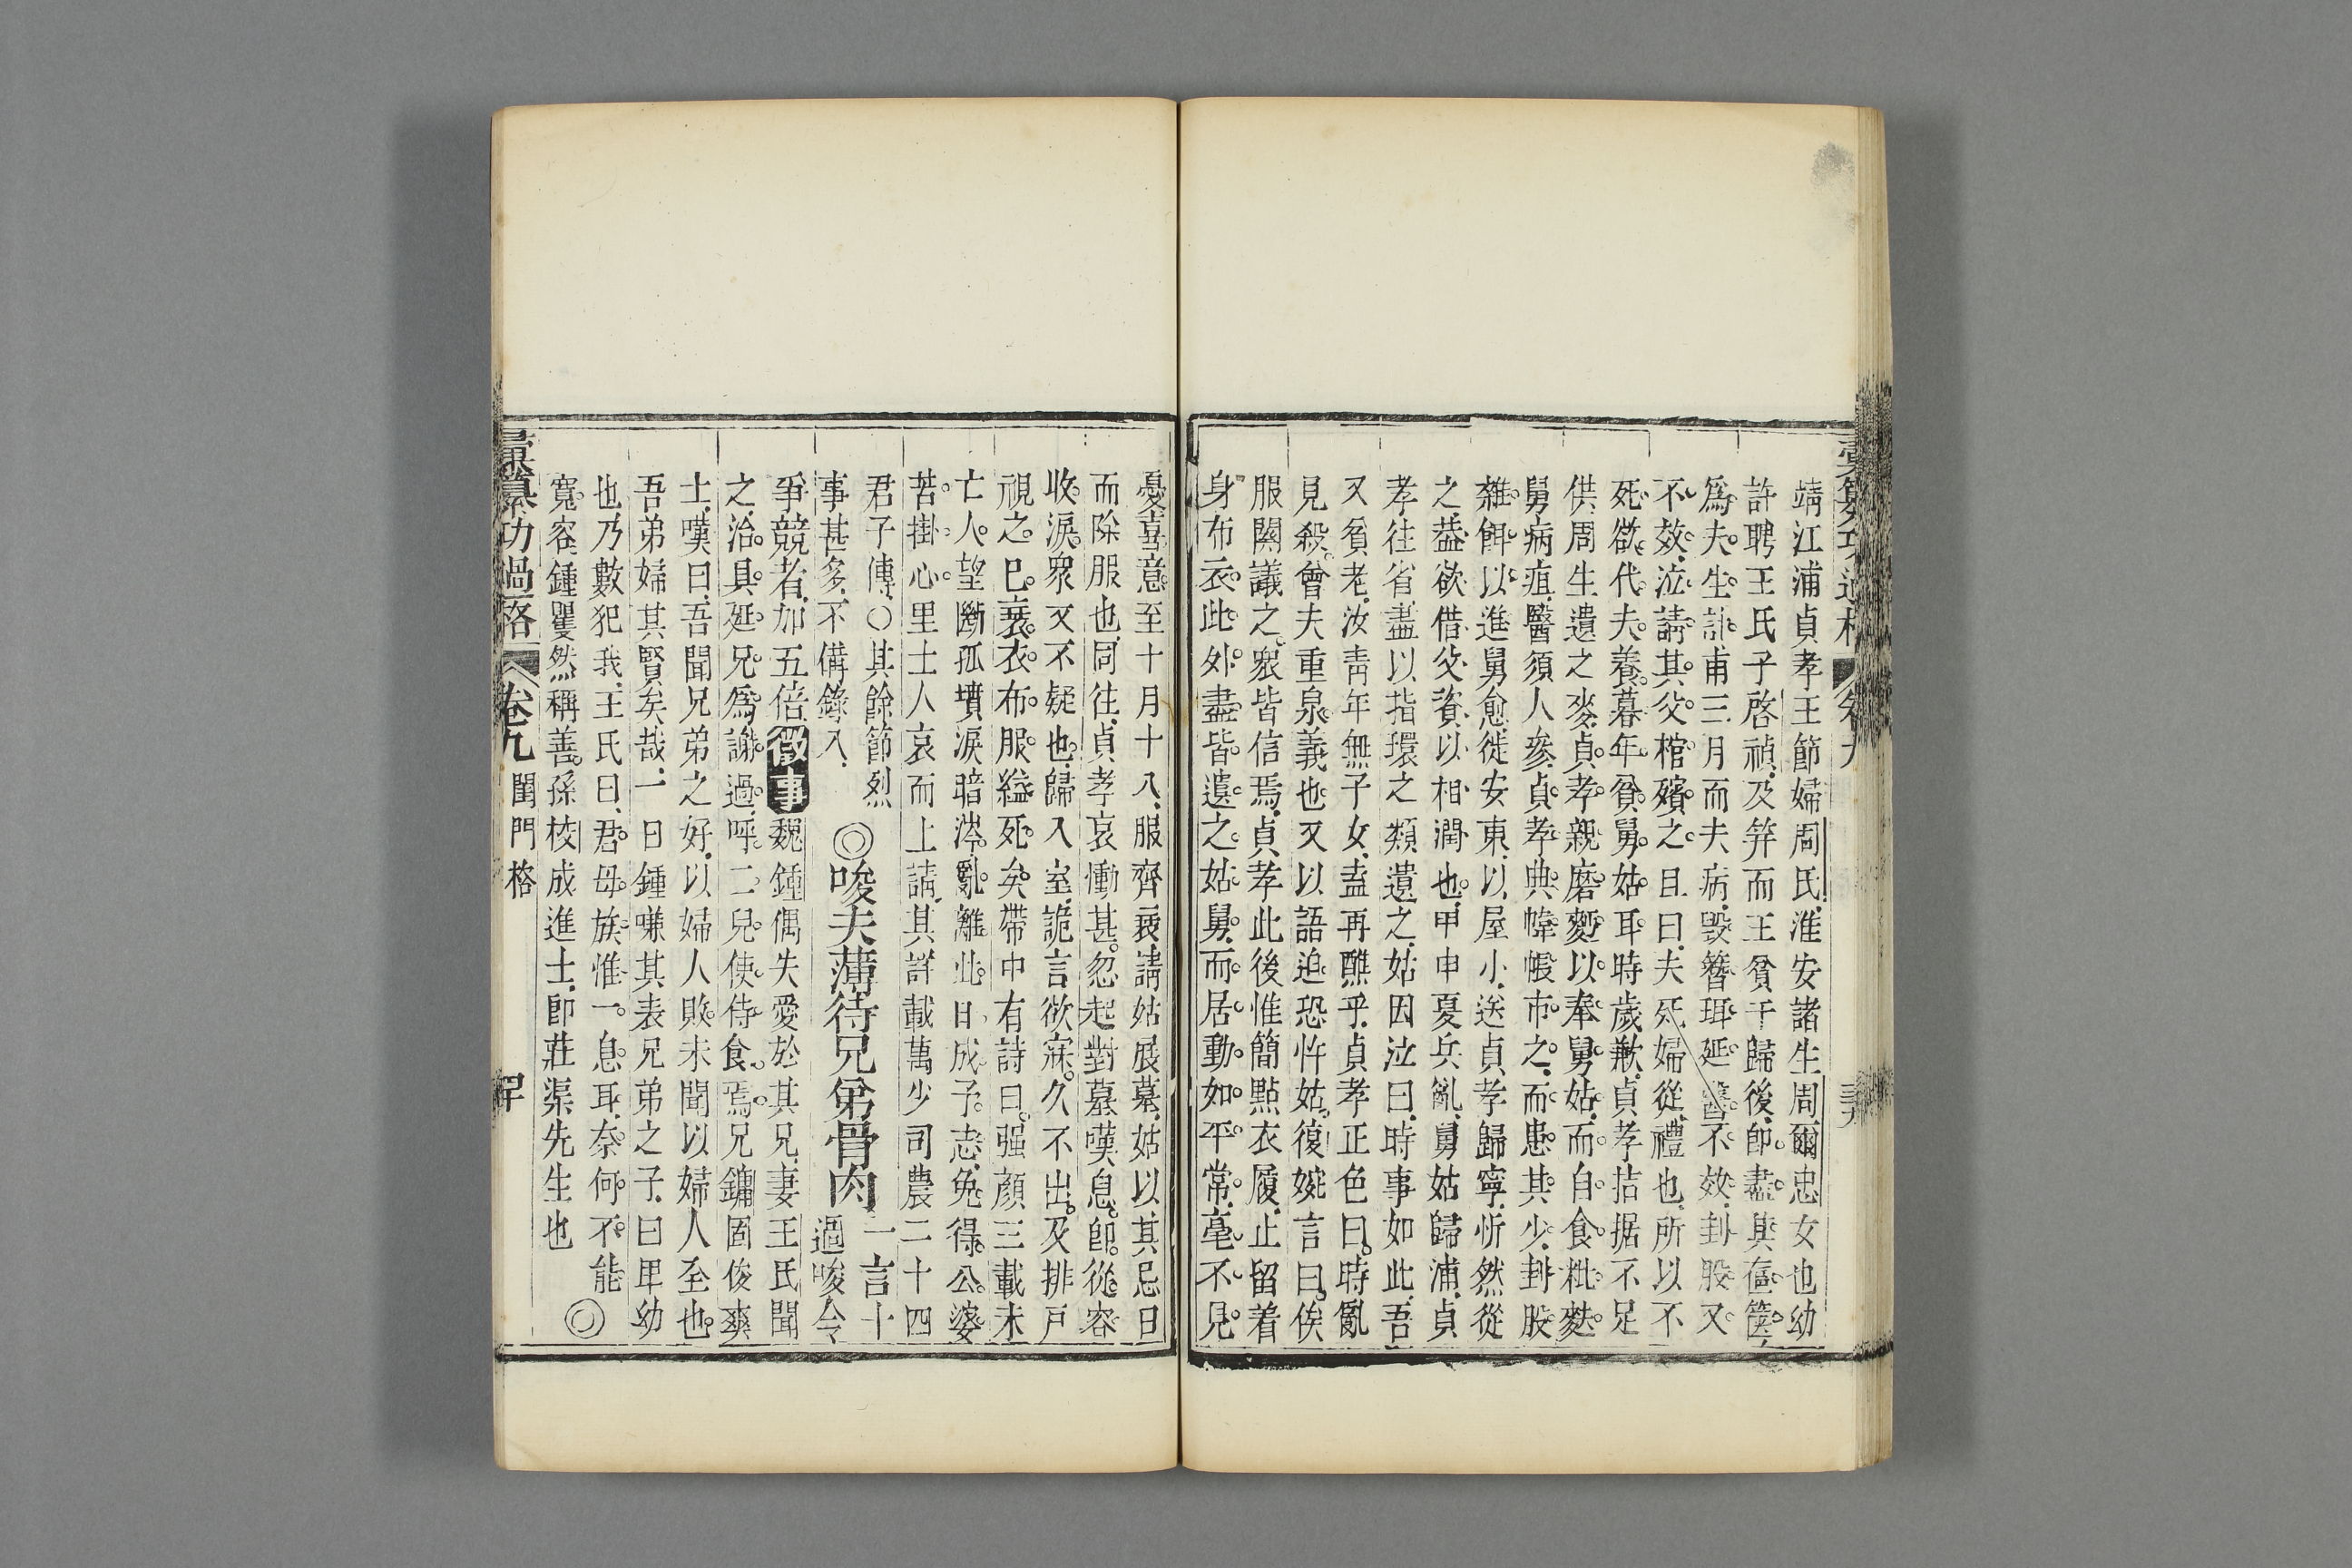 彙纂功過格 卷九 三十九
靖江浦貞孝王節婦周氏淮安諸生周爾忠女也幼
許聘王氏子啓禎及笄而王貧于歸後卽盡典奩篋
爲夫生計甫三月而夫病毀簪珥延醫不效刲股又
不效泣請其父棺殯之且曰夫死婦從禮也所以不
死欲代夫養暮年貧舅姑耳時歲歉貞孝拮据不足
供周生遺之麥貞孝親磨麫以奉舅姑而自食粃麩
舅病疽醫須人參貞孝典幃帳市之而患其少刲股
雜餌以進舅愈徙安東以屋小送貞孝歸寧忻然從
之葢欲借父資以相潤也甲申夏兵亂舅姑歸浦貞
孝往省盡以指環之類遺之姑因泣曰時事如此吾
又貧老汝靑年無子女盍再醮乎貞孝正色曰時亂
見殺會夫重泉義也又以語迫恐忤姑復婉言曰俟
服闋議之衆皆信焉貞孝此後惟簡點衣履止留着
身布衣此外盡皆遺之姑舅而居動如平常毫不見
憂喜意至十月十八服齊衰請姑展墓姑以其忌日
而除服也同往貞孝哀慟甚忽起對墓嘆息卽從容
收淚衆又不疑也歸入室詭言欲寐久不出及排戸
視之巳衰衣布服縊死矣帶中有詩曰强顔三載未
亡人望斷孤墳淚暗涔亂離此日成子志免得公婆
苦掛心里士人哀而上請其詳載萬少司農二十四
君子傳○其餘節烈
事甚多不備錄入
◎唆夫薄待兄弟骨肉 一言十過唆令
爭競者加五倍 徵事 魏鍾偶失愛於其兄妻王氏聞
之治具延兄爲謝過呼二兒使侍食焉兄鏞固俊爽
士嘆曰吾聞兄弟之好以婦人敗未聞以婦人至也
吾弟婦其賢矣哉一日鍾嗛其表兄弟之子曰甲幼
也乃數犯我王氏曰君母族惟一息耳奈何不能
寬容鍾瞿然稱善孫校成進士卽莊渠先生也 ◎
彙纂功過格 卷九 閨門格 四十